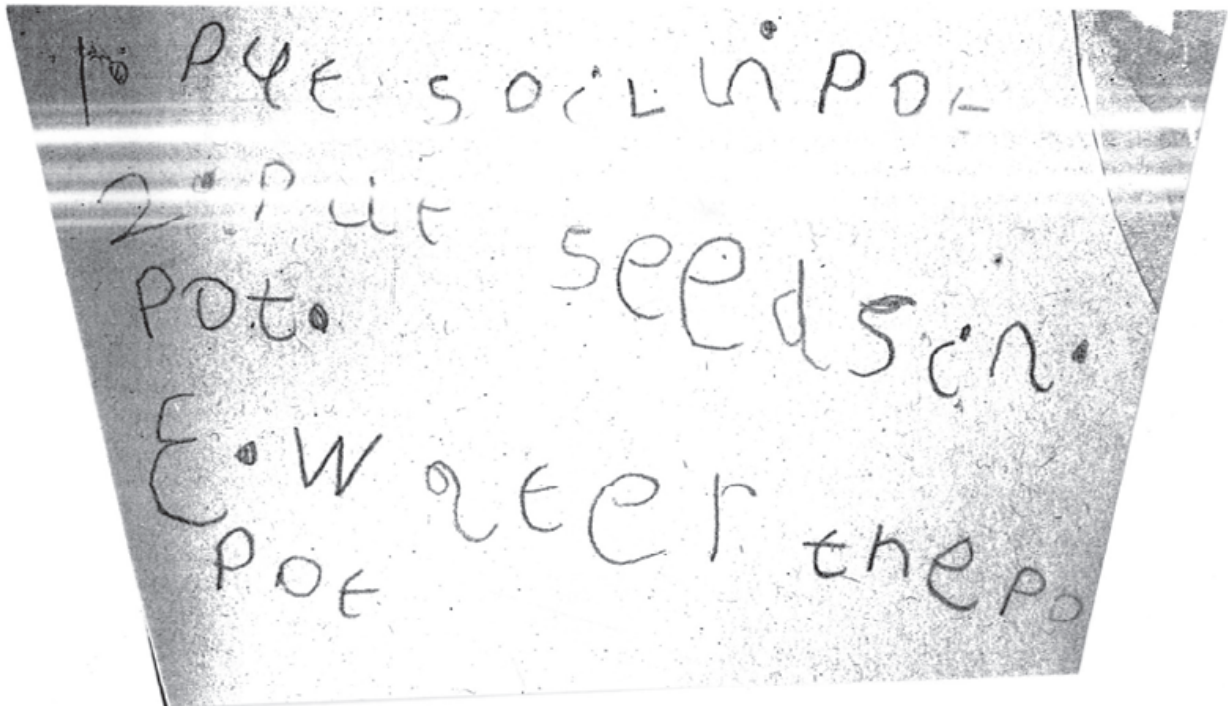 1. Put soil in Pot
2. Put seeds in.
Pot.
3. Water the po
Pot